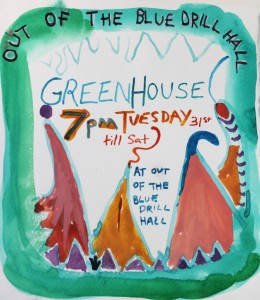 OUT OF THE BLUE DRILL HALL
GREENHOUSE
7pm TUESDAY 31st
till Sat
AT OUT
OF THE
BLUE
DRILL
HALL